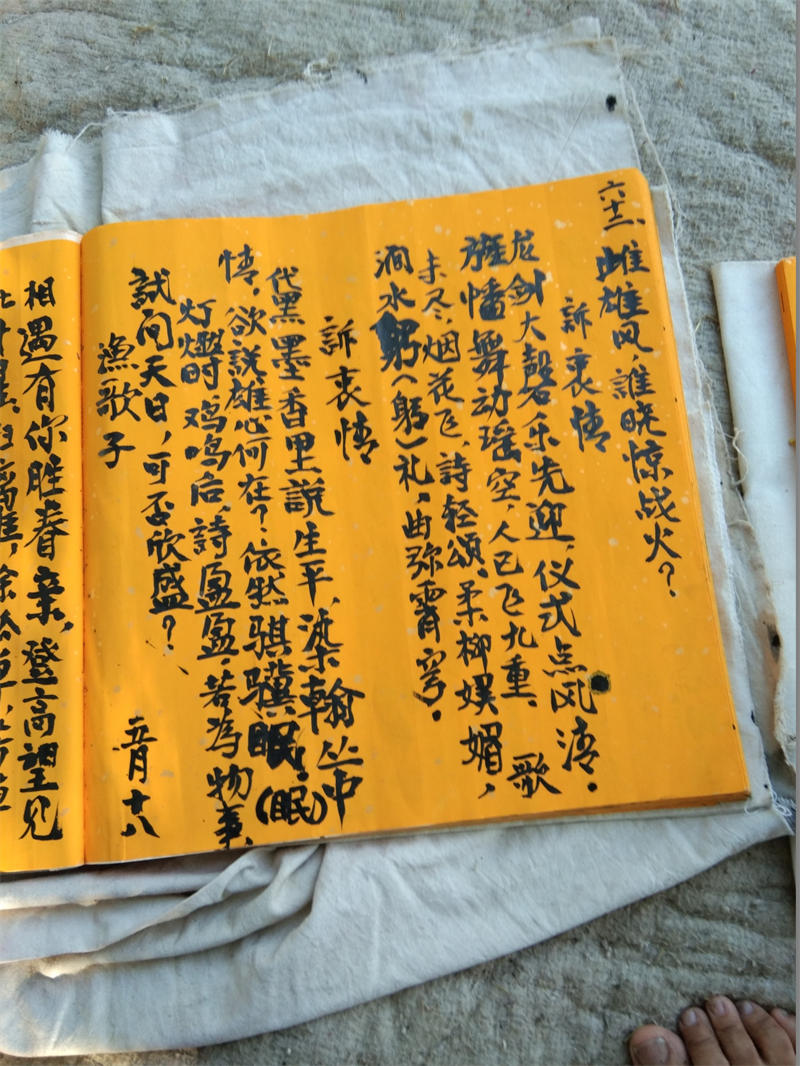 六十二、雌雄风,誰晓惊战火?
訴衷情
龙剑大磬乐先迎,仪式点风清。
旌幡舞动瑶空,人已飞九重。歌
未尽,烟花飞,詩轻颂,柔柳媄媚,
涧水躬(躬)礼,曲弥霄穹。
訴衷情
代黑墨香里説生平,染翰丛中
情。欲説雄心何在?依然骐骥眠(眠)
灯燈时,鸡鸣后,詩盈盈。若为物事,
試问天日,可否欣盛?
漁歌子
五月十八
相遇有你胜春亲,登高望见